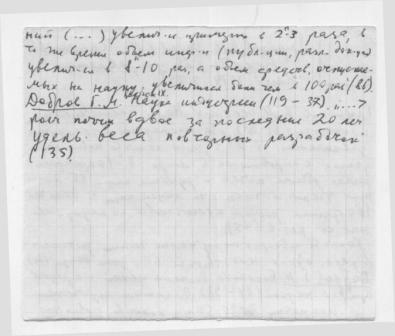 ний (...) увелич-и примерно в 2-3 раза, в
то же время объем инф-и
увелич-ся в 8-10 раз, а объем средств, отпускае-
мых на науку, увеличился более чем в 100 раз
Добров Г.М. Наука о науке (119-37). "...
рост почти вдвое за последние 20 лет
удельн. веса повторных разработок
(135)